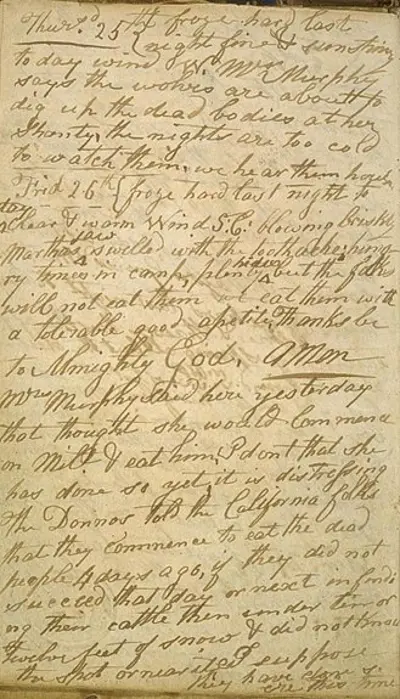 Thursd 25th froze hard last
night fine & sunshiny
today wind W. Mrs Murphy
says the wolves are about to
dig up the dead bodies at her
shanty, the nights are too cold
to watch them, we hear them howl
Frid 26th froze hard last night to
day clear & warm Wind S.E. blowing briskly
Marthas jaw swelled with the toothache; hung
ry times in camp, plenty hides but the folks
will not eat them we eat them with
a tolerable good apetite, Thanks be
to Almighty God, Amen
Mrs Murphy said here yesterday
that thought she would commence
on Milt & eat him, I dont that she
has done so yet, it is distressing
The Donnos told the California folks
that they commence to eat the dead
people 4 days ago, if they did not
succeed that day or next in findi
ng their cattle then under ten or
twelve feet of snow & did not know
the spot or near it, I suppose
they have done so ere this time